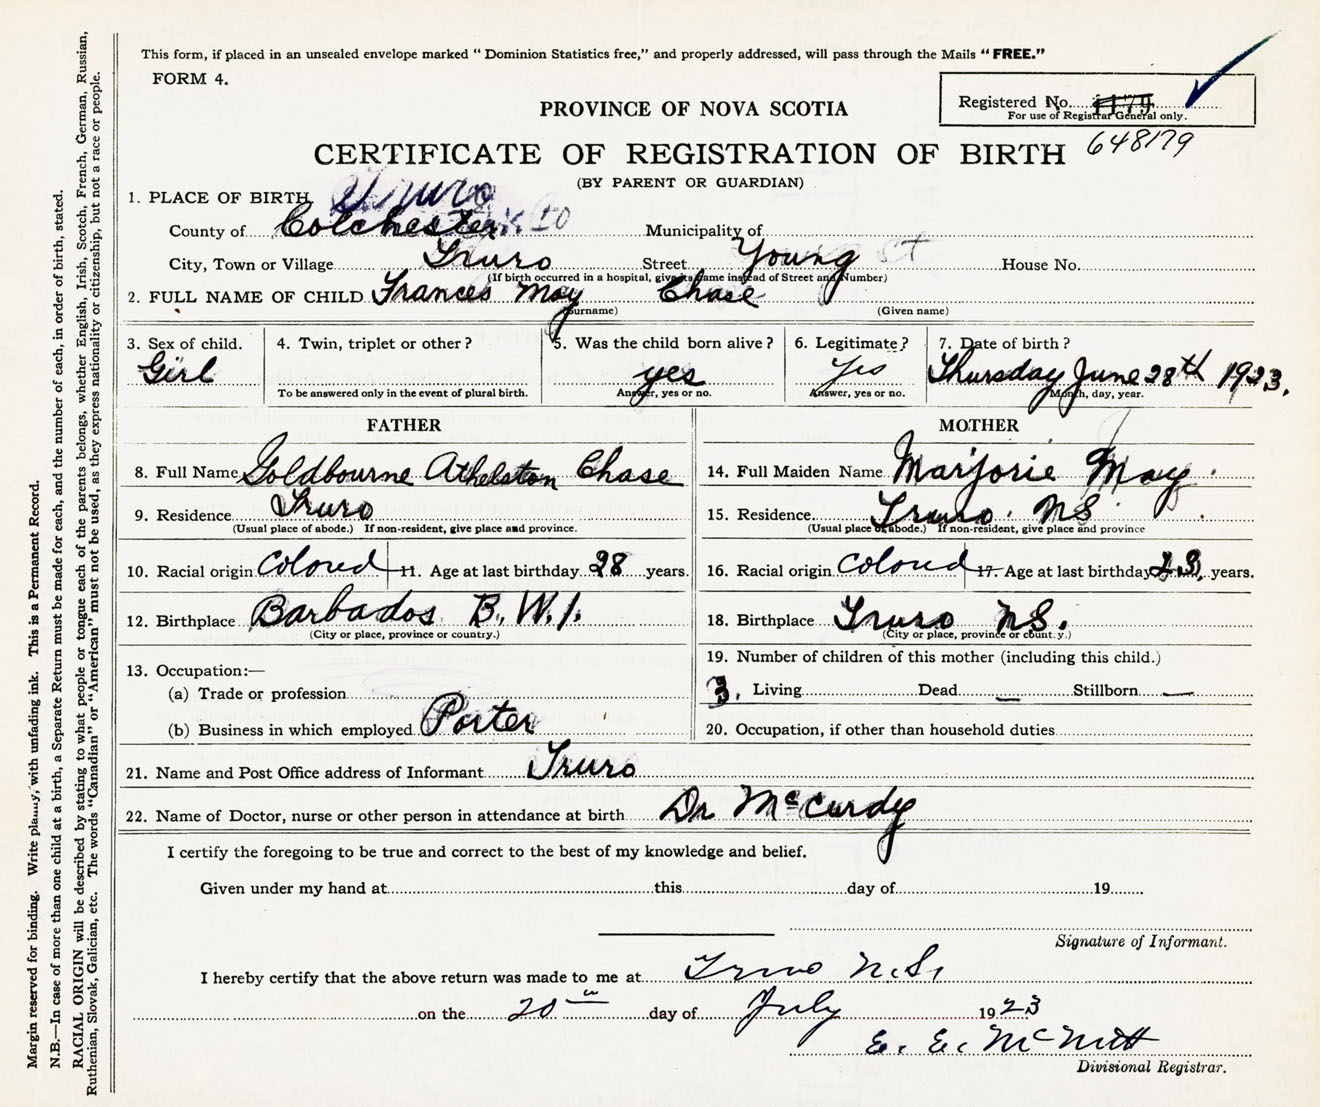 This form, if placed in an unsealed envelope marked "Dominion Statistics free," and properly addressed, will pass through the Mails "FREE."
FORM 4.
Registered No. 1179
For use of Registrar General only.
648179
PROVINCE OF NOVA SCOTIA
CERTIFICATE OF REGISTRATION OF BIRTH
(BY PARENT OR GUARDIAN)
1. PLACE OF BIRTH Truro
County of Colchester Municipality of
City, Town or Village Truro Street Young St House No.
(If birth occurred in a hospital, give its name instead of Street and Number)
2. FULL NAME OF CHILD Frances May Chase
(Surname) (Given name)
3. Sex of child. 4. Twin, triplet or other? 5. Was the child born alive? 6. Legitimate? 7. Date of birth?
Girl yes Yes Thursday June 28th 1923.
To be answered only in the event of plural birth. Answer, yes or no. Answer, yes or no. Month, day, year.
FATHER MOTHER
8. Full Name Goldbourne Athelston Chase 14. Full Maiden Name Marjorie May.
9. Residence Truro 15. Residence Truro. NS
(Usual place of abode.) If non-resident, give place and province. (Usual place of abode.) If non-resident, give place and province
10. Racial origin Colored 11. Age at last birthday 28 years. 16. Racial origin Colored 17. Age at last birthday 23, years.
12. Birthplace Barbados B.W.I. 18. Birthplace Truro NS.
(City or place, province or country.) (City or place, province or country.)
13. Occupation:— 19. Number of children of this mother (including this child.)
(a) Trade or profession 3. Living Dead — Stillborn —
(b) Business in which employed Porter 20. Occupation, if other than household duties
21. Name and Post Office address of Informant Truro
22. Name of Doctor, nurse or other person in attendance at birth Dr McCurdy
I certify the foregoing to be true and correct to the best of my knowledge and belief.
Given under my hand at this day of 19
Signature of Informant.
I hereby certify that the above return was made to me at Truro N.S.
on the 20 day of July 1923
E. E. McNutt
Divisional Registrar.
Margin reserved for binding. Write plainly, with unfading ink. This is a Permanent Record.
N.B.—In case of more than one child at a birth, a Separate Return must be made for each, and the number of each, in order of birth, stated.
RACIAL ORIGIN will be described by stating to what people or tongue each of the parents belongs, whether English, Irish, Scotch, French, German, Russian,
Ruthenian, Slovak, Galician, etc. The words "Canadian" or "American" must not be used, as they express nationality or citizenship, but not a race or people.